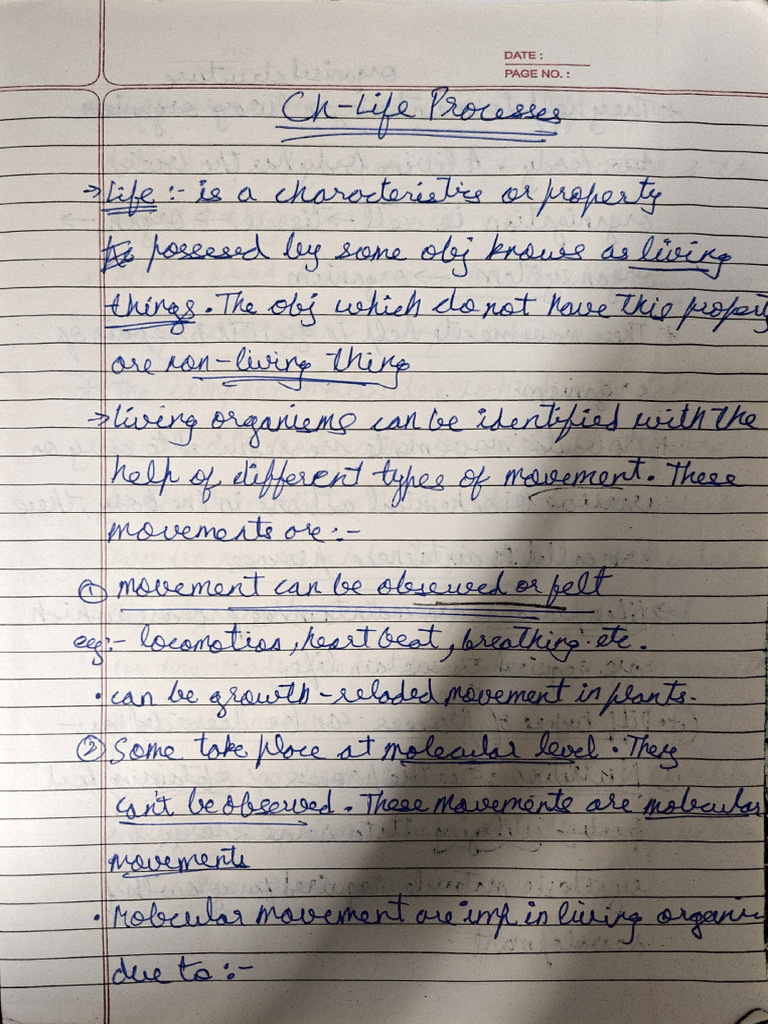 DATE :
PAGE NO. :
Ch-Life Processes
→ Life :- is a characteristics or property
possesed by some obj knows as living
things. The obj which do not have this property
are non-living thing
→ living organisms can be identified with the
help of different types of movement. These
movements are :-
① movement can be obserwed or felt
eg:- locomotion, heart beat, breathing etc.
• can be growth-reladed movement in plants.
② Some take place at molecular level. They
can't be observed. These movements are molecular
movements
• Molecular movement are imp in living
due to :-